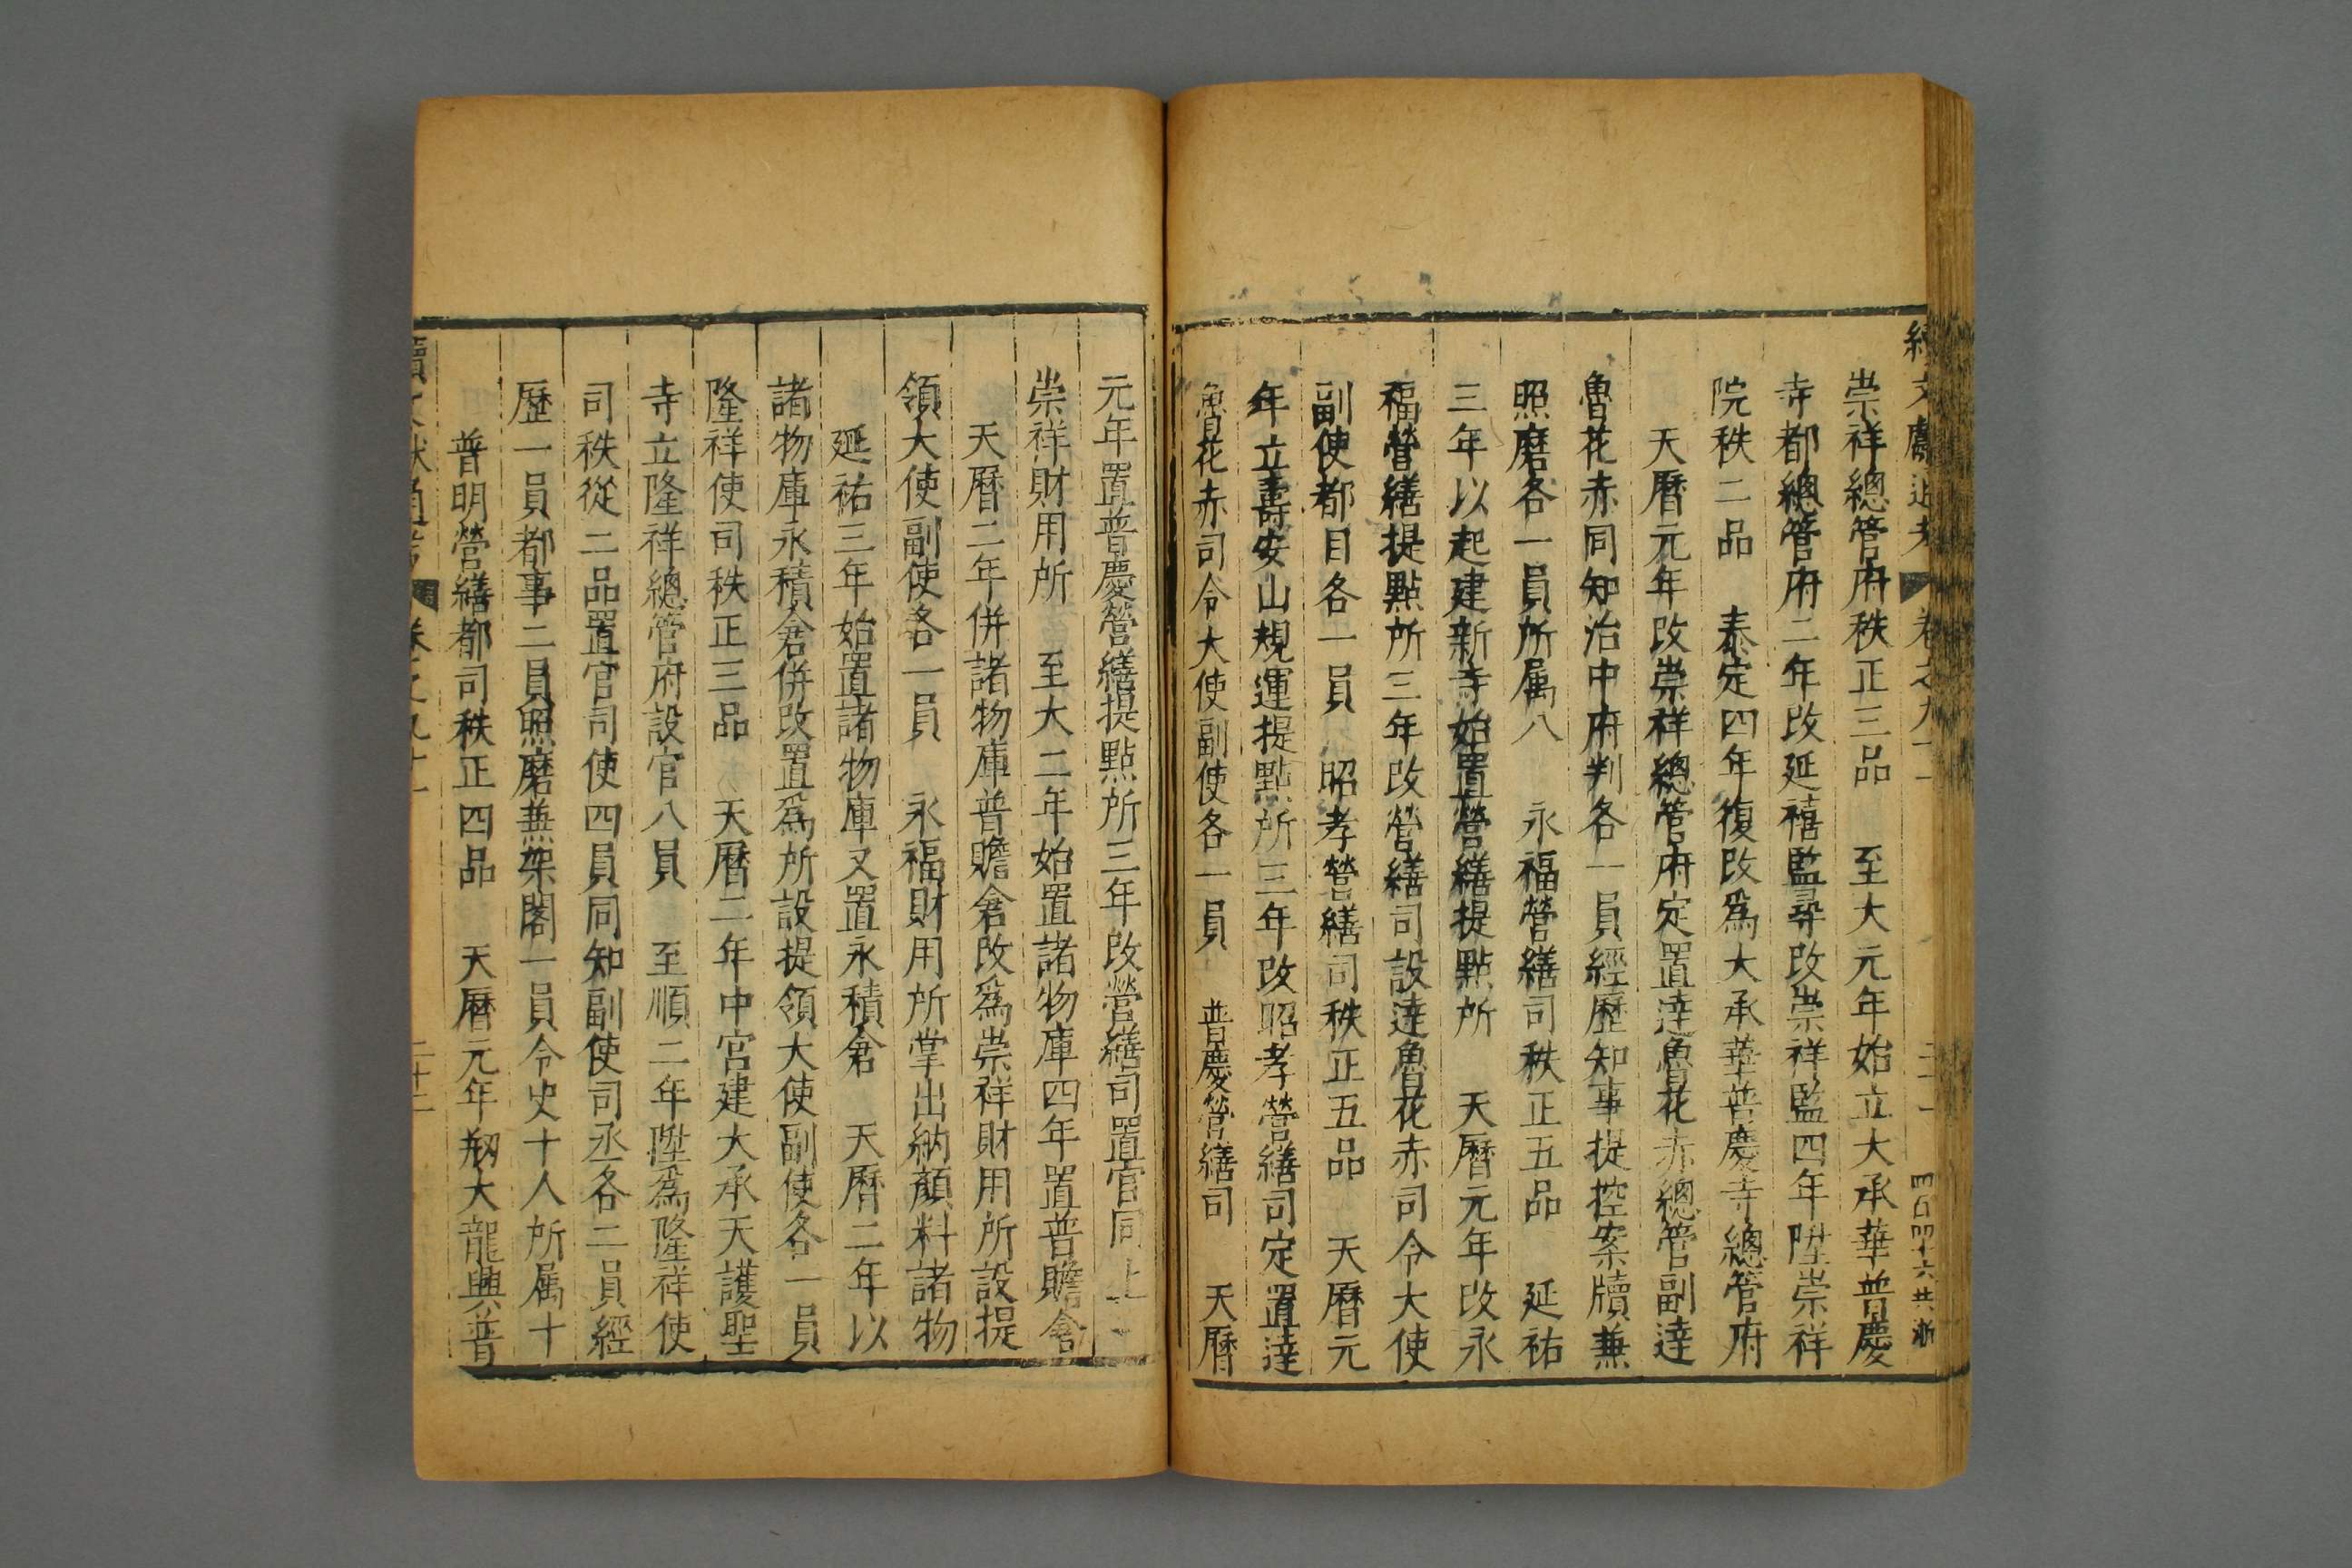 續文獻通考 卷之九十一
崇祥總管府秩正三品 至大元年始立大承華普慶
寺都總管府二年改延禧監尋改崇祥監四年陞崇祥
院秩二品 泰定四年復改爲大承華普慶寺總管府
天曆元年改崇祥總管府定置達魯花赤總管副達
魯花赤同知治中府判各一員經歷知事提控案牘兼
照磨各一員所属八 永福營繕司秩正五品 延祐
三年以起建新寺始置營繕提點所 天曆元年改永
福營繕提點所三年改營繕司設達魯花赤司令大使
副使都目各一員 昭孝營繕司秩正五品 天曆元
年立壽安山規運提點所三年改昭孝營繕司定置達
魯花赤司令大使副使各一員 普慶營繕司 天曆
元年置普慶營繕提點所三年改營繕司置官同上
崇祥財用所 至大二年始置諸物庫四年置普贍倉
天曆二年併諸物庫普贍倉改爲崇祥財用所設提
領大使副使各一員 永福財用所掌出納顏料諸物
延祐三年始置諸物庫又置永積倉 天曆二年以
諸物庫永積倉併改置爲所設提領大使副使各一員
隆祥使司秩正三品 天曆二年中宮建大承天護聖
寺立隆祥總管府設官八員 至順二年陞爲隆祥使
司秩從二品置官司使四員同知副使司丞各二員經
歷一員都事二員照磨兼架閣一員令史十人所属十
普明營繕都司秩正四品 天曆元年剏大龍興普
續文獻通考 卷之九十一 二十二